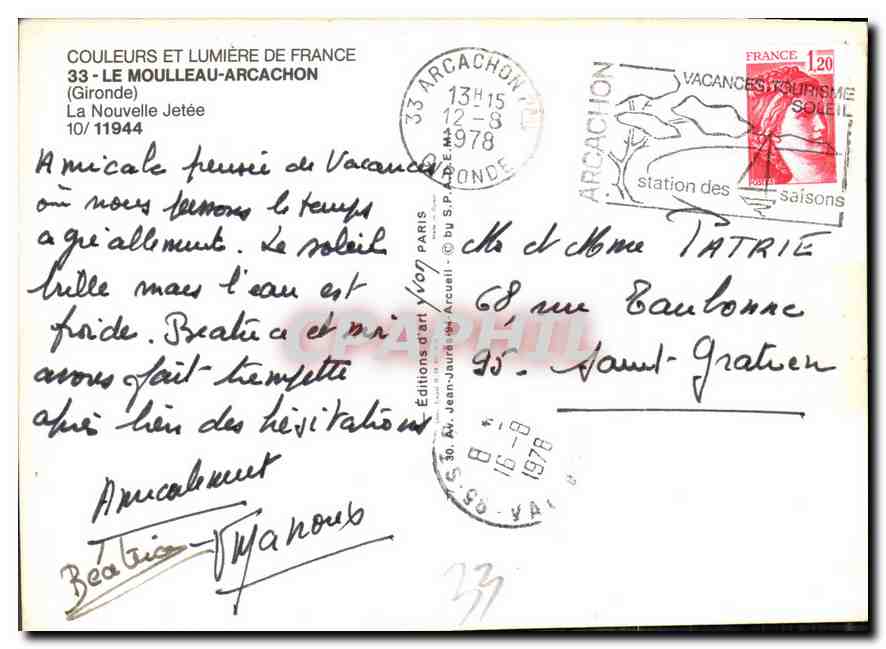 COULEURS ET LUMIÈRE DE FRANCE
33 - LE MOULLEAU-ARCACHON
(Gironde)
La Nouvelle Jetée
10/ 11944
Amicale pensée de Vacances
où nous passons le temps
agréablement. Le soleil
brille mais l'eau est
froide. Béatrice et moi
avons fait trempette
après bien des hésitations
Amicalement
Béatrice - 
Éditions d'art Yvon PARIS
30, Av. Jean-Jaurès-94-Arcueil - © by S.P.A.D.E.M.
33 ARCACHON
13H15
12-8
1978
GIRONDE
ARCACHON
VACANCES TOURISME
SOLEIL
station des saisons
FRANCE 1,20
Mr et Mme PATRIE
68, rue Taulonne
95. Saint-Gratien
16-8
1978
33
CPAPHIL